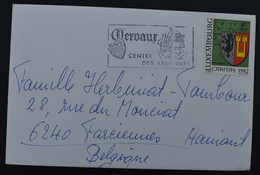 Clervaux
CENTRE
DES ARDENNES
LUXEMBOURG
CARITAS 1982
Famille Herbiniat-Tambour
28, rue du Monciat
6240 Farciennes Hainaut
Belgique